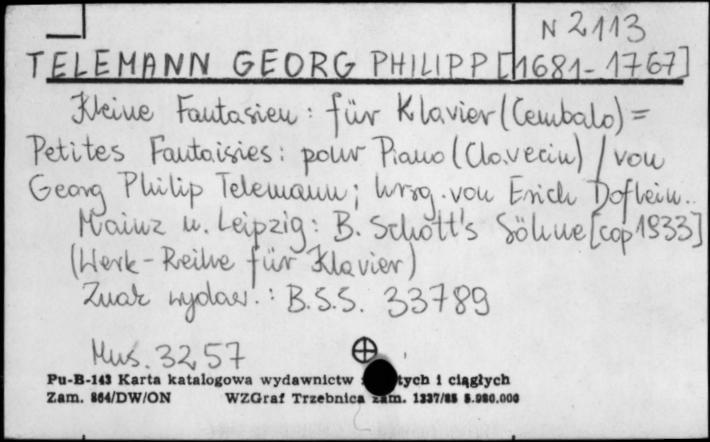 N 2113
TELEMANN GEORG PHILIPP [1681-1767]
Kleine Fantasien : für Klavier (Cembalo) =
Petites Fantaisies : pour Piano (Clavecin) / von
Georg Philip Telemann ; hrsg. von Erich Doflein..
Mainz u. Leipzig : B. Schott's Söhne [cop 1933]
(Werk-Reihe für Klavier)
Znak wydaw. : B.S.S. 33789
Mus. 3257
Pu-B-143 Karta katalogowa wydawnictw i ciągłych
Zam. 864/DW/ON WZGraf Trzebnica zam. 1337/88 5.000.000